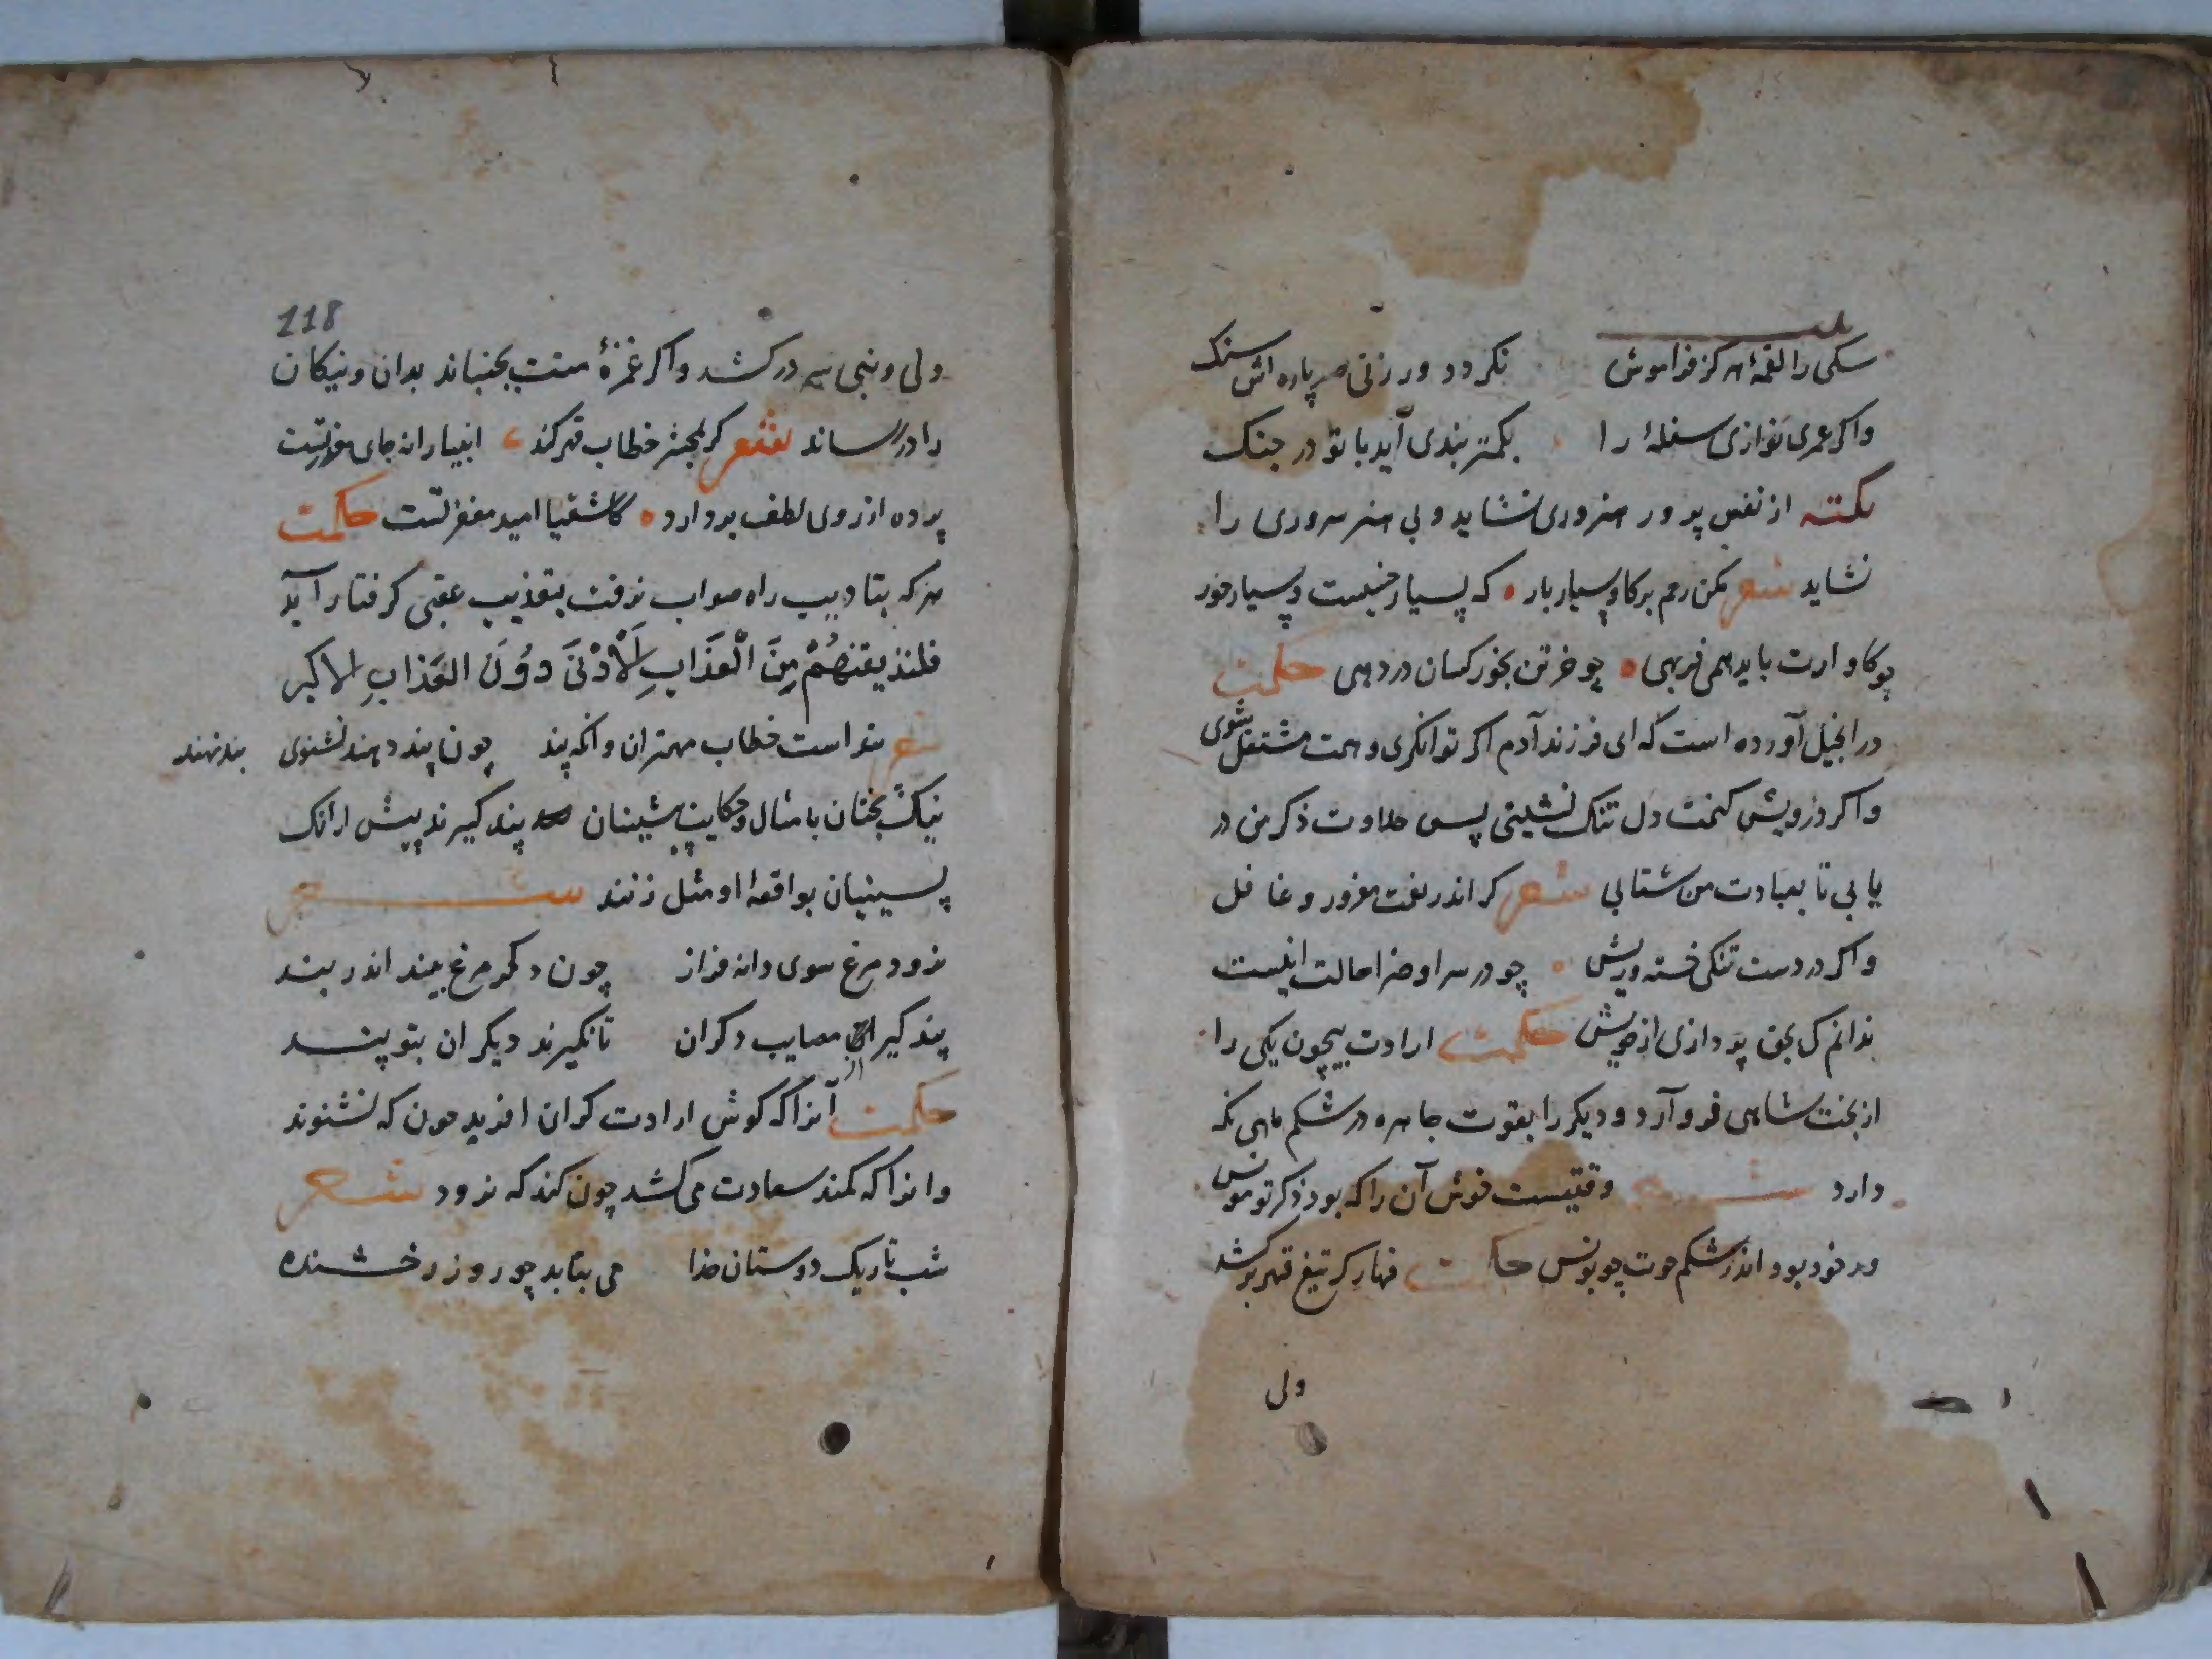 سکی را لقمهٔ هرکز فراموش نکردد ور زنی صد باره اش سنک
واکر عمری نوازی سفلهٔ را بکمتر بندی آید با تو در جنک
نکته از نفس پرور هنروری نشاید و بی هنر سروری را
نشاید شعر مکن رحم بر کاو بسیار بار که بسیار خسبست و بسیار خور
چو کاو ارت باید همی فربهی چو خر تن بجور کسان در دهی حکمت
در انجیل آورده است که ای فرزند آدم اکر توانکری دهمت مشتغل شوی
واکر درویش کنمت دل تنک نشینی پس حلاوت ذکر من در
یابی تا بعبادت من شتابی شعر کر اندر نعمت مغرور و غافل
واکر در دست تنکی خسته و ریش چو در سرا و ضرا حالت اینست
ندانم کی بحق پردازی از خویش حکمت ارادت بیچون یکی را
از تخت شاهی فرو آرد و دیکر را بقوت جا هره در شکم ماهی نکه
دارد شعر وقتیست خوش آن را که بود ذکر تو مونس
ور خود بود اندر شکم حوت چو یونس حکمت قهار کر تیغ قهر برکشد
ولی
118
ولی و نبی سر در کشد واکر غمزهٔ منت بجنباند بدان و نیکان
را در رساند شعر کر بمحشر خطاب قهر کند انبیا را نه جای معذرتست
پرده از روی لطف بر دارد کاشقیا امید مغفرتست حکمت
هر که بتادیب راه صواب نرفت بتعذیب عقبی کرفتار آید
فلنذیقنهُمْ مِنَ الْعَذَابِ الْأَدْنَی دُونَ العَذَابِ الاکبر
شعر پند است خطاب مهتران وانکه پند چون پند دهند نشنوی بند نهند
نیک بختان بامثال و حکایت پیشینان پند کیرند پیش ازانک
پسینیان بواقعهٔ او مثل زنند شعر
نرود مرغ سوی دانه فراز چون دکر مرغ بیند اندر بند
پند کیر از مصایب دکران تا نکیرند دیکران بتو پند
حکمت آنرا که کوش ارادت کران افرید چون که نشنوند
وانرا که کمند سعادت می کشد چون کند که نرود شعر
شب تاریک دوستان خدا می بتابد چو روز رخشنده